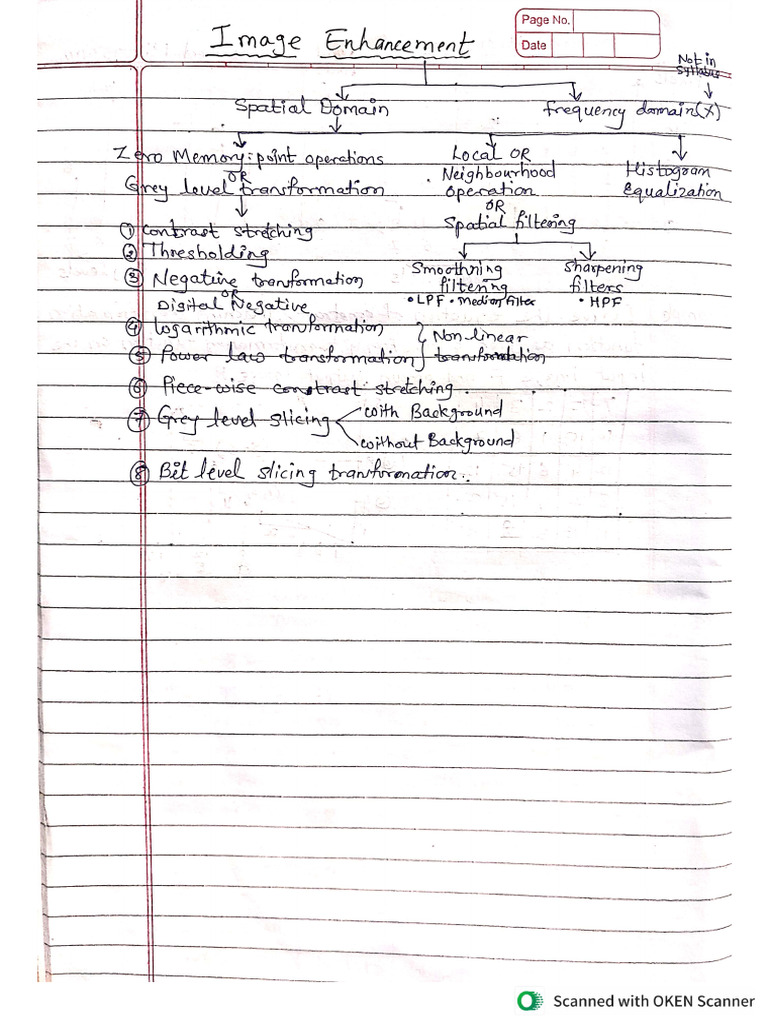 Page No.
Date
Image Enhancement
Not in
Syllabus
Spatial Domain
frequency domain(X)
Zero Memory: point operations
OR
Grey level transformation
Local OR
Neighbourhood
operation
OR
Spatial filtering
Histogram
Equalization
① Contrast stretching
② Thresholding
③ Negative transformation
OR
Digital Negative
Smoothring
filtering
• LPF • Median filter
Sharpening
filters
• HPF
④ logarithmic transformation
⑤ Power law transformation
Non-linear
transformation
⑥ Piece-wise constrast stretching.
⑦ Grey level slicing
with Background
without Background
⑧ Bit level slicing transformation..
Scanned with OKEN Scanner